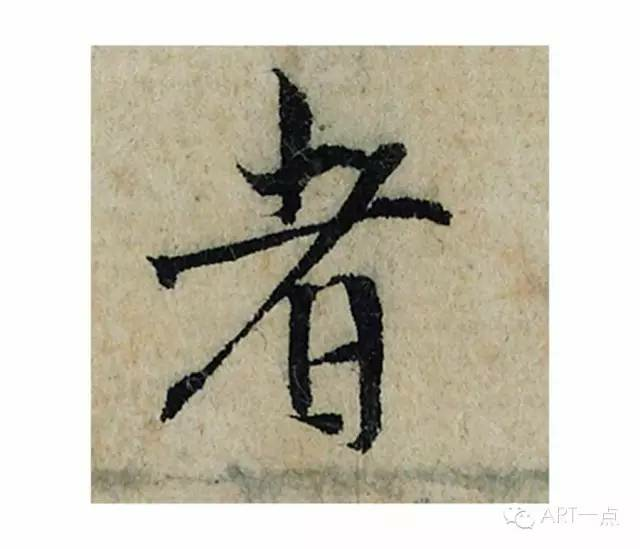 者
ART一点